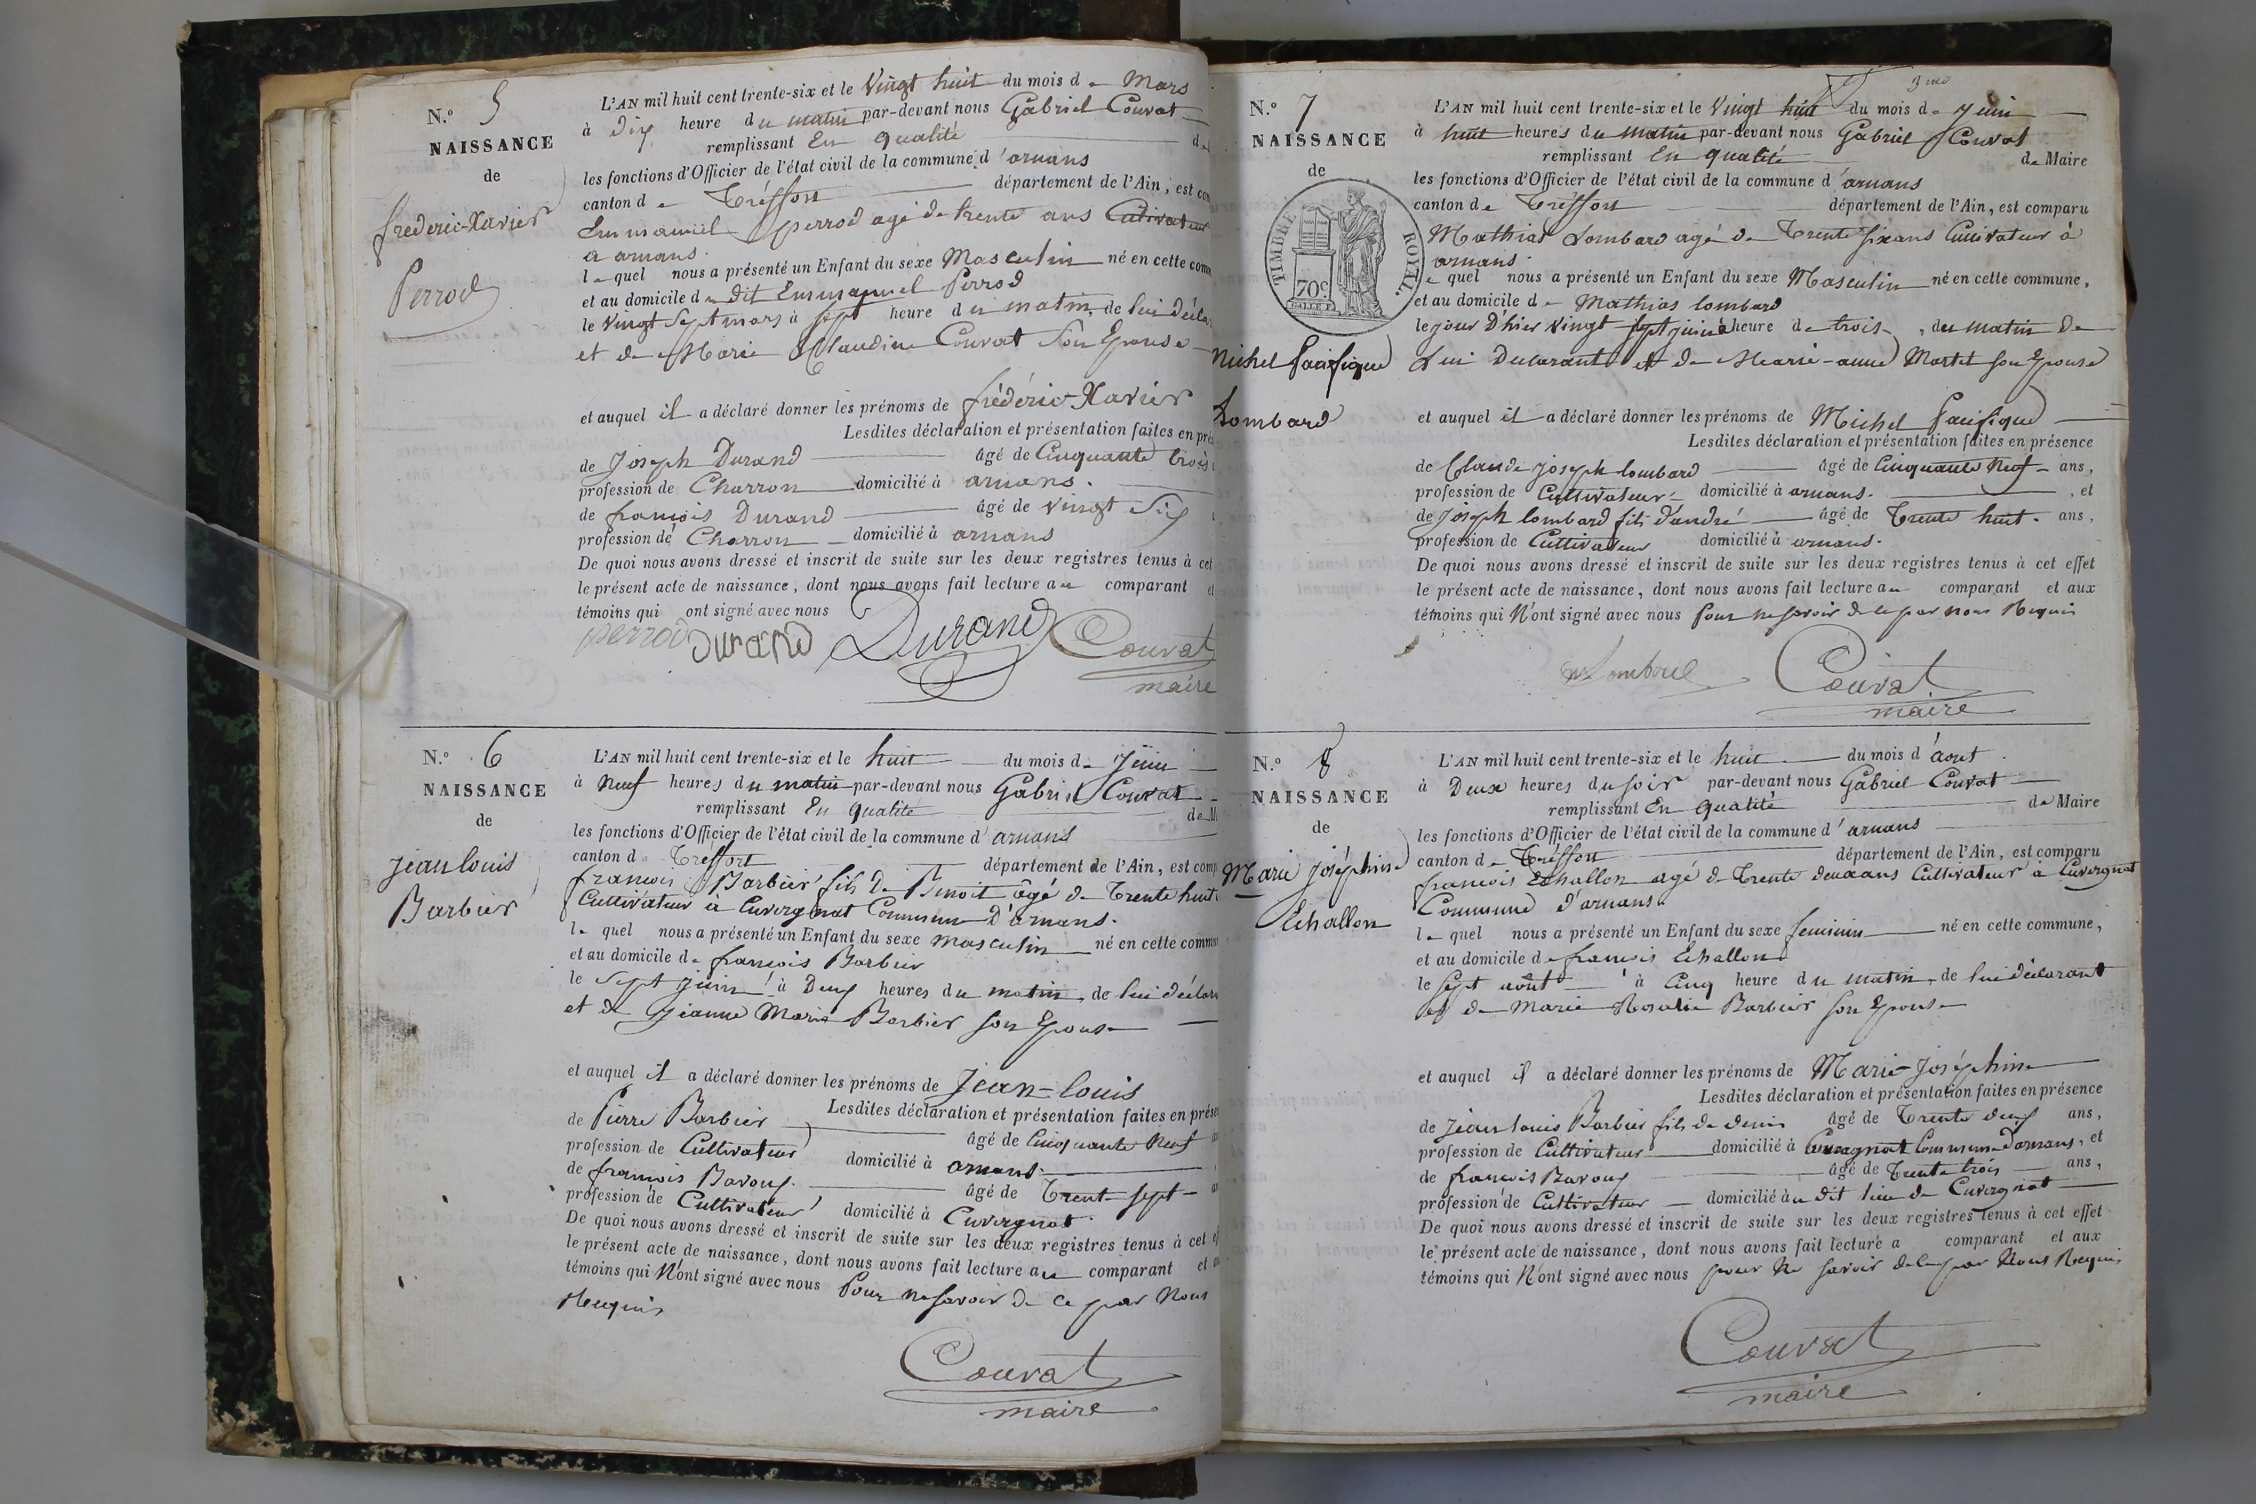 N.° 5
NAISSANCE
de
frederic-Xavier
Perrod
L'AN mil huit cent trente-six et le Vingt huit du mois de Mars
à Dix heure du matin par-devant nous Gabriel Couvat
remplissant En qualité de
les fonctions d'Officier de l'état civil de la commune d'arnans
canton de Tréffort département de l'Ain, est com
Emmanuel perrod agé de trente ans Cultivateur
a arnans.
le quel nous a présenté un Enfant du sexe Masculin né en cette comm
et au domicile de dit Emmanuel Perrod
le Vingt Sept mars à Sept heure du matin, de lui déclar
et de Marie Claudine Couvat Son Epouse
et auquel il a déclaré donner les prénoms de frédéric-Xavier
Lesdites déclaration et présentation faites en pré
de Joseph Durand âgé de Cinquante trois
profession de Charron domicilié à arnans.
de françois Durand âgé de vingt Six
profession de Charron domicilié à arnans
De quoi nous avons dressé et inscrit de suite sur les deux registres tenus à cet
le présent acte de naissance, dont nous avons fait lecture au comparant et
témoins qui ont signé avec nous
perrod Durand Durand Couvat
maire
N.° 6
NAISSANCE
de
jean louis
Barbier
L'AN mil huit cent trente-six et le huit du mois de Juin
à Neuf heures du matin par-devant nous Gabriel Couvat
remplissant En qualité de M
les fonctions d'Officier de l'état civil de la commune d'arnans
canton de Tréffort département de l'Ain, est comp
françois Barbier fils de Benoit âgé de Trente huit
Cultivateur à Cuvergnat Commune D'arnans.
le quel nous a présenté un Enfant du sexe masculin né en cette commun
et au domicile de françois Barbier
le Sept juin à Deux heures du matin, de lui déclar
et de jeanne Marie Barbier son Epouse
et auquel il a déclaré donner les prénoms de Jean-louis
Lesdites déclaration et présentation faites en prése
de Pierre Barbier âgé de Cinquante Neuf
profession de Cultivateur domicilié à arnans.
de françois Baroux âgé de Trente sept
profession de Cultivateur domicilié à Cuvergnat.
De quoi nous avons dressé et inscrit de suite sur les deux registres tenus à cet ef
le présent acte de naissance, dont nous avons fait lecture au comparant et a
témoins qui N'ont signé avec nous Pour ne savoir de ce par Nous
Requis
Couvat
maire
N.° 7
NAISSANCE
de
TIMBRE ROYAL.
70c.
Michel Pacifique
Lombard
L'AN mil huit cent trente-six et le Vingt huit du mois de juin
à huit heures du matin par-devant nous Gabriel Couvat
remplissant En qualité de Maire
les fonctions d'Officier de l'état civil de la commune d'arnans
canton de Tréffort département de l'Ain, est comparu
Mathias Lombard agé de Trente six ans Cultivateur à
arnans.
le quel nous a présenté un Enfant du sexe Masculin né en cette commune,
et au domicile de Mathias lombard
le jour D'hier Vingt-sept juin à heure de trois, du matin De
Lui Declarant et de Marie-anne Martel son Epouse
et auquel il a déclaré donner les prénoms de Michel Pacifique
Lesdites déclaration et présentation faites en présence
de Claude joseph lombard âgé de Cinquante Neuf ans,
profession de Cultivateur domicilié à arnans. , et
de Joseph lombard fils d'andré âgé de Trente huit. ans,
profession de Cultivateur domicilié à arnans.
De quoi nous avons dressé et inscrit de suite sur les deux registres tenus à cet effet
le présent acte de naissance, dont nous avons fait lecture au comparant et aux
témoins qui N'ont signé avec nous Pour ne savoir de ce par nous Requis
Couvat
maire
N.° 8
NAISSANCE
de
Marie joséphine
Echallon
L'AN mil huit cent trente-six et le huit du mois d'aout
à Deux heures du soir par-devant nous Gabriel Couvat
remplissant En qualité de Maire
les fonctions d'Officier de l'état civil de la commune d'arnans
canton de Tréffort département de l'Ain, est comparu
françois Echallon agé de Trente deux ans Cultivateur à Cuvergnat
Commune d'arnans
le quel nous a présenté un Enfant du sexe feminin né en cette commune,
et au domicile de françois Echallon
le sept aôut à Cinq heure du matin, de lui déclarant
et de Marie Rosalie Barbier son Epouse
et auquel il a déclaré donner les prénoms de Marie-Joséphine
Lesdites déclaration et présentation faites en présence
de jean louis Barbier fils de denis âgé de Trente deux ans,
profession de Cultivateur domicilié à Cuvergnat Commune D'arnans, et
de françois Baroux âgé de Trente trois ans,
profession de Cultivateur domicilié à u dit lieu de Cuvergnat
De quoi nous avons dressé et inscrit de suite sur les deux registres tenus à cet effet
le présent acte de naissance, dont nous avons fait lecture a comparant et aux
témoins qui N'ont signé avec nous pour Ne savoir de ce par Nous Requis
Couvat
maire